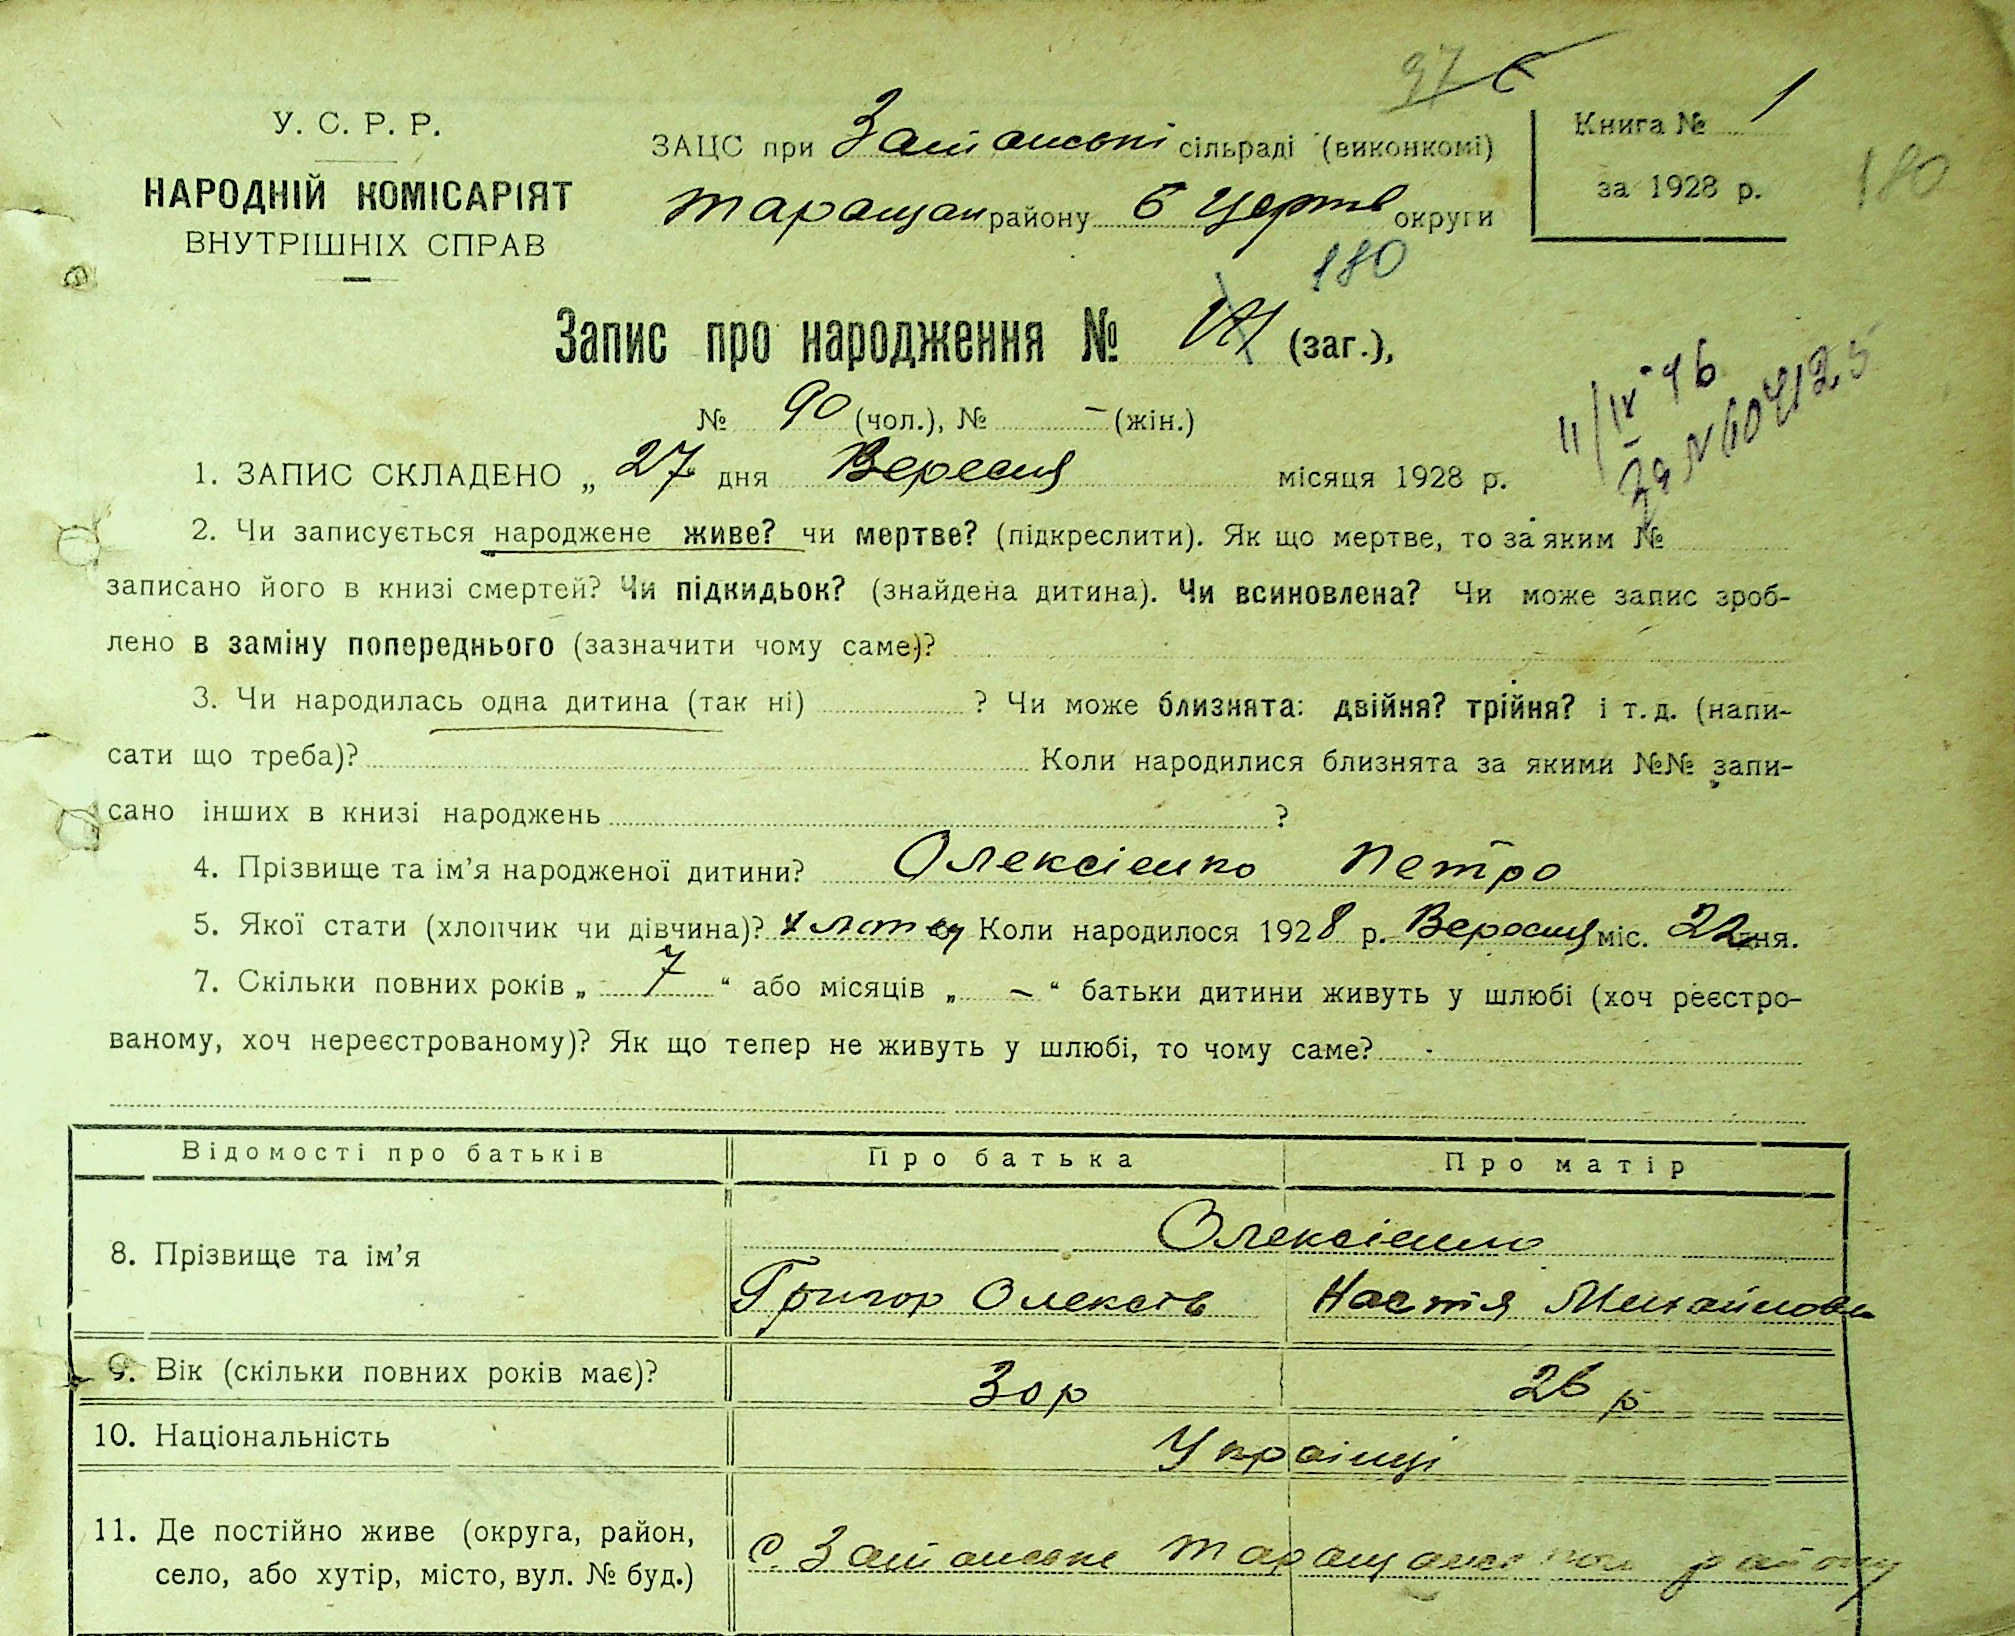 97
У. С. Р. Р.
НАРОДНІЙ КОМІСАРІЯТ
ВНУТРІШНІХ СПРАВ
ЗАЦС при сільраді (виконкомі)
Таращан району Б Церкв округи
Книга № 1
за 1928 р.
180
180
Запис про народження № (заг.),
№ 90 (чол.), № – (жін.)
11/IV 46
За №
1. ЗАПИС СКЛАДЕНО „ 27 дня Вересня місяця 1928 р.
2. Чи записується народжене живе? чи мертве? (підкреслити). Як що мертве, то за яким №
записано його в книзі смертей? Чи підкидьок? (знайдена дитина). Чи всиновлена? Чи може запис зроб-
лено в заміну попереднього (зазначити чому саме)?
3. Чи народилась одна дитина (так ні) ? Чи може близнята: двійня? трійня? і т. д. (напи-
сати що треба)? Коли народилися близнята за якими №№ запи-
сано інших в книзі народжень ?
4. Прізвище та ім’я народженої дитини? Олексієнко Петро
5. Якої стати (хлопчик чи дівчина)? Коли народилося 1928 р. Вересня міс. 22 дня.
7. Скільки повних років „ 7 “ або місяців „ – “ батьки дитини живуть у шлюбі (хоч реєстро-
ваному, хоч нереєстрованому)? Як що тепер не живуть у шлюбі, то чому саме?
Відомості про батьків Про батька Про матір
8. Прізвище та ім’я Олексієнко
Григор Олексів Настя Михайлова
9. Вік (скільки повних років має)? 30 р 26 р
10. Національність Українці
11. Де постійно живе (округа, район,
село, або хутір, місто, вул. № буд.) с. Таращанського району